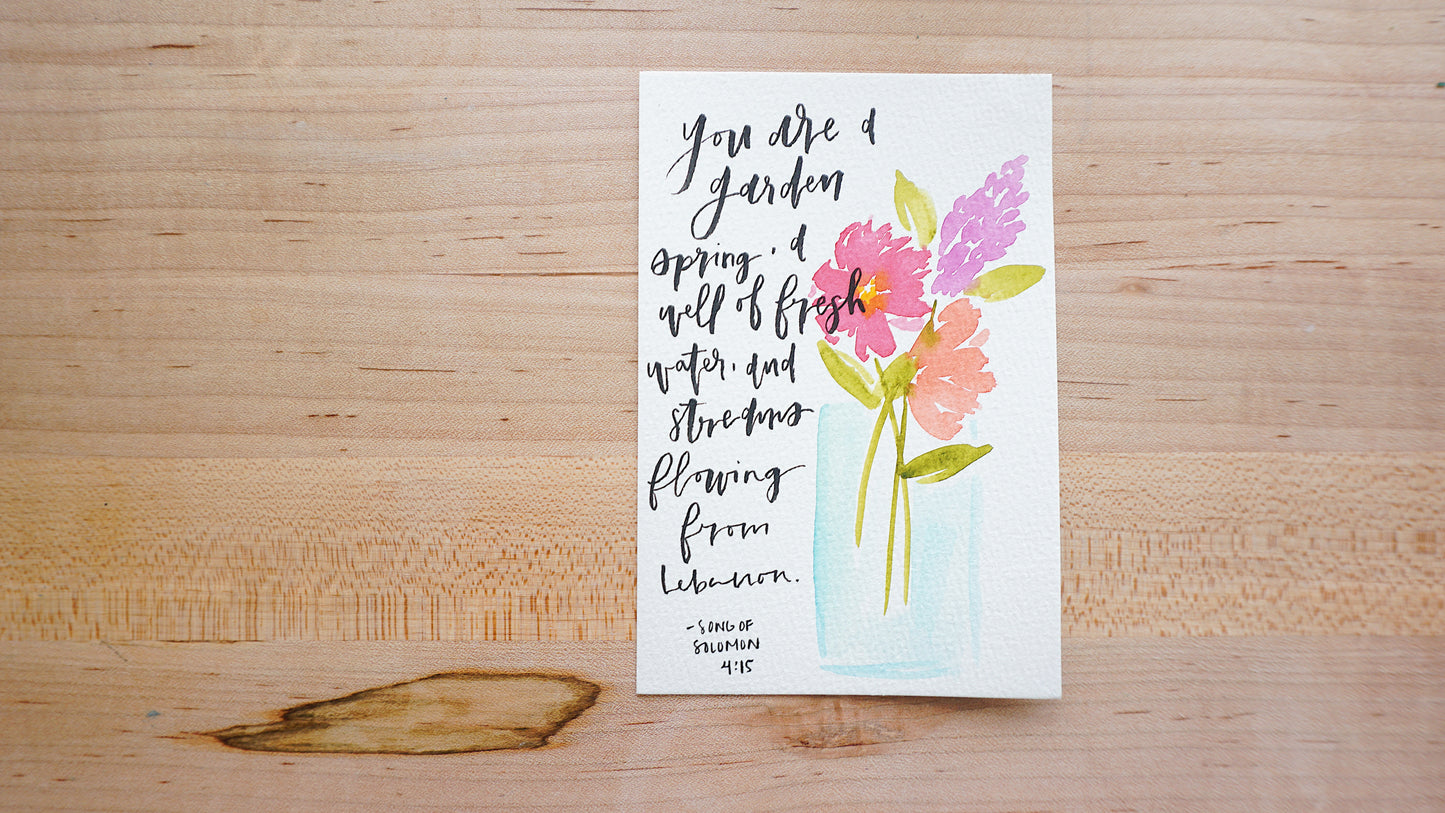 You are a
garden
spring, a
well of fresh
water, and
streams
flowing
from
Lebanon.
- SONG OF
SOLOMON
4:15